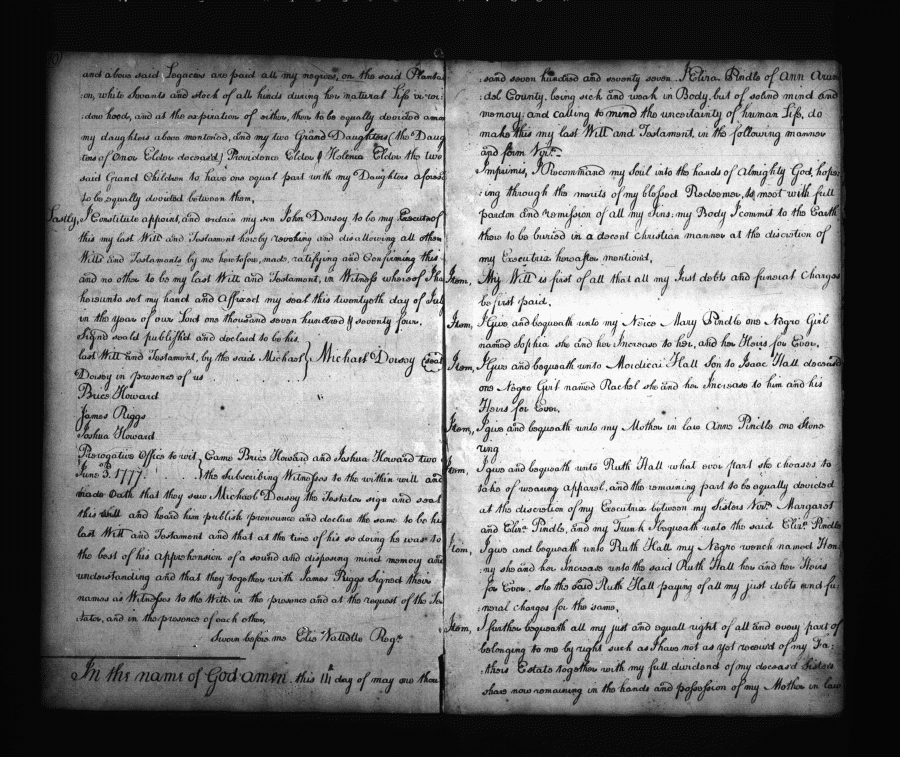 and above said Legacies are paid all my negroes, on the said Planta
on, white Servants and stock of all kinds during her natural Life or wi:
:dow hood, and at the expiration of either, then to be equally devided amo
my daughters above mentioned, and my two Grand Daughters (the Daug
ters of Oner Elder deceased) Providence Elder & Helenia Elder the two
said Grand Children to have one equal part with my Daughters aforesd
to be equally devided between them,
Lastly, I Constitute appoint, and ordain my son John Dorsey to be my Executor of
this my last Will and Testament hereby revoking and disallowing all other
Wills and Testaments by me heretofore, made, ratifying and Confirming this
and no other to be my last Will and Testament, in Witness whereof I ha
hereunto set my hand and affixed my seal this twentyeth day of July
in the year of our Lord one thousand seven hundred & seventy four.
Signd seald publishd and declard to be his
last Will and Testament, by the said Michael } Michael Dorsey (seal
Dorsey in presence of us
Brice Howard
James Riggs
Joshua Howard
Prerogative Office to wit } Came Brice Howard and Joshua Howard two
June 3. 1777. } the Subscribing Witnesses to the within will and
made Oath that they saw Michael Dorsey the Testator sign and seal
this will and heard him publish pronounce and declare the same to be his
last Will and Testament and that at the time of his so doing he was to
the best of his apprehension of a sound and disposing mind memory and
understanding and that they together with James Riggs Signed their
names as Witnesses to the Will in the presence and at the request of the Tes
tator, and in the presence of each other,
Sworn before me Elie Vallette Regr
In the name of God amen. this 14 day of may one thou
:sand seven hundred and seventy seven. I Eliza. Pindle of Ann Arun
del County, being sick and weak in Body, but of sound mind and
memory, and calling to mind the uncertainty of human Life, do
make this my last Will and Testament, in the following manner
and form Vizt.
Imprimis, I Recommend my Soul into the hands of Almighty God, hope:
:ing through the merits of my blessed Redeemer, to meet with full
pardon and remission of all my Sins: my Body I commit to the Earth
there to be buried in a decent christian manner at the discretion of
my Executrix hereafter mentioned,
Item, My Will is first of all that all my Just debts and funeral Charges
be first paid.
Item, I Give and bequeath unto my Neice Mary Pindle one Negro Girl
named Sophia she and her Increase to her, and her Heirs for Ever,
Item, I Give and bequeath unto Mordicai Hall Son to Isaac Hall deceased
one Negro Girl named Rachel she and her Increase to him and his
Heirs for Ever,
Item, I give and bequeath unto my Mother in law Anne Pindle one Stone
ring
Item, I give and bequeath unto Ruth Hall what ever part she chooses to
take of wearing apparel, and the remaining part to be equally devided
at the discretion of my Executrix between my Sisters Vizt. Margaret
and Elizr. Pindle, and my Trunk I bequeath unto the said Elizr. Pindle
Item, I give and bequeath unto Ruth Hall my Negro wench named Hen:
ny she and her Increase unto the said Ruth Hall her and her Heirs
for Ever, she the said Ruth Hall paying of all my just debts and fu:
:neral charges for the same,
Item, I further bequeath all my just and equall right of all and every part of
belonging to me by right such as I have not as yet receivd of my Fa:
thers Estate together with my full dividend of my deceasd Sisters
share now remaining in the hands and possession of my Mother in law